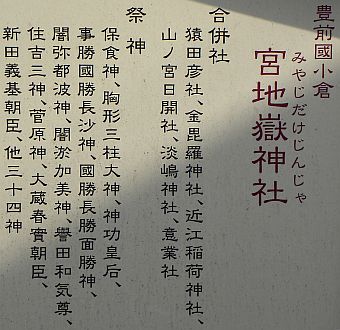 豊前國小倉
みやじだけじんじゃ
宮地嶽神社
合併社
猿田彦社、金毘羅神社、近江稲荷神社、
山ノ宮日開社、淡嶋神社、意業社
祭神
保食神、胸形三柱大神、神功皇后、
事勝國勝長沙神、國勝長勝面勝神、
闇弥都波神、闇淤加美神、誉田和気尊、
住吉三神、菅原神、大蔵春實朝臣、
新田義基朝臣、他三十四神